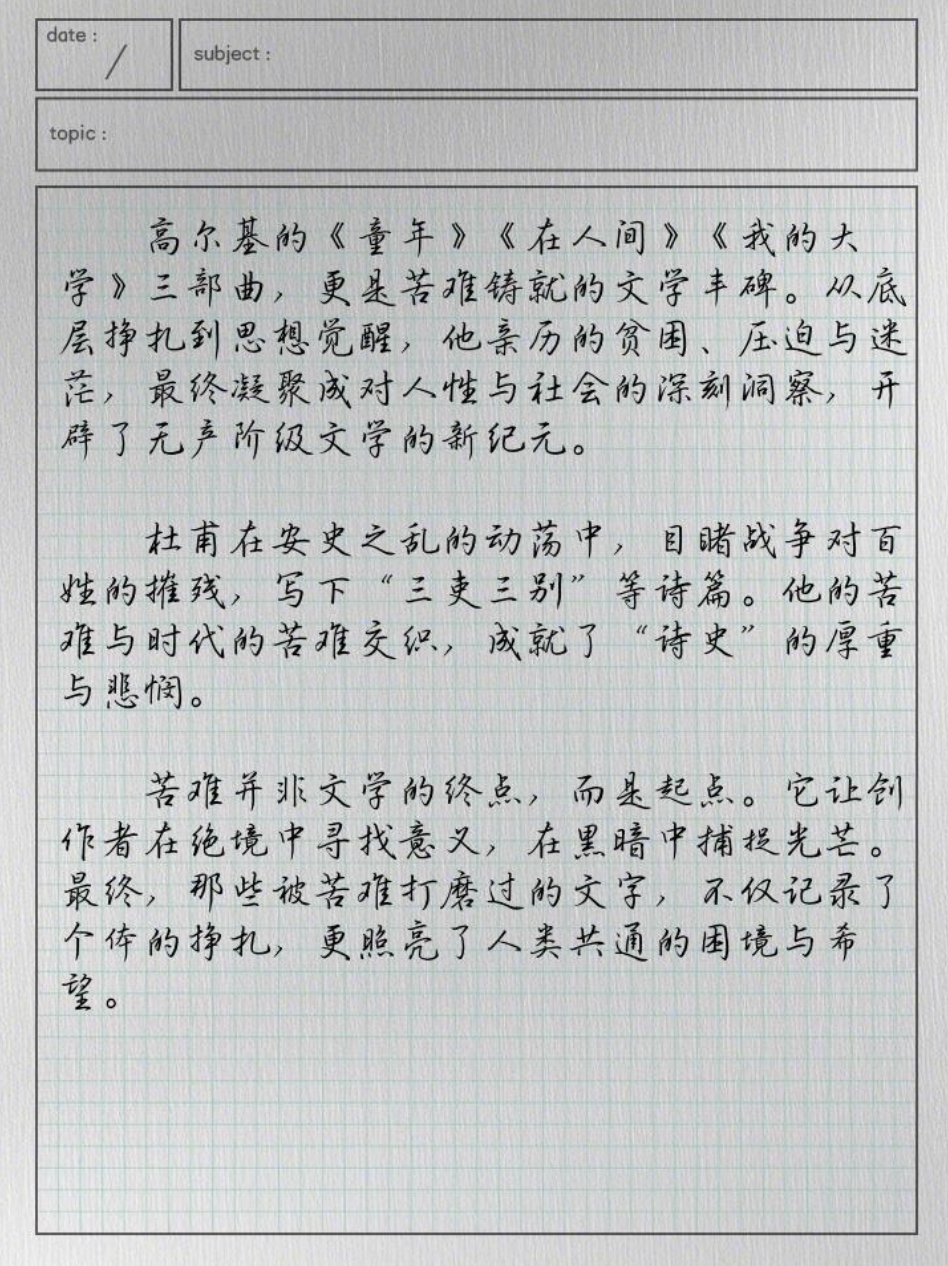 date :
/
subject :
topic :
高尔基的《童年》《在人间》《我的大
学》三部曲，更是苦难铸就的文学丰碑。从底
层挣扎到思想觉醒，他亲历的贫困、压迫与迷
茫，最终凝聚成对人性与社会的深刻洞察，开
辟了无产阶级文学的新纪元。
杜甫在安史之乱的动荡中，目睹战争对百
姓的摧残，写下“三吏三别”等诗篇。他的苦
难与时代的苦难交织，成就了“诗史”的厚重
与悲悯。
苦难并非文学的终点，而是起点。它让创
作者在绝境中寻找意义，在黑暗中捕捉光芒。
最终，那些被苦难打磨过的文字，不仅记录了
个体的挣扎，更照亮了人类共通的困境与希
望。